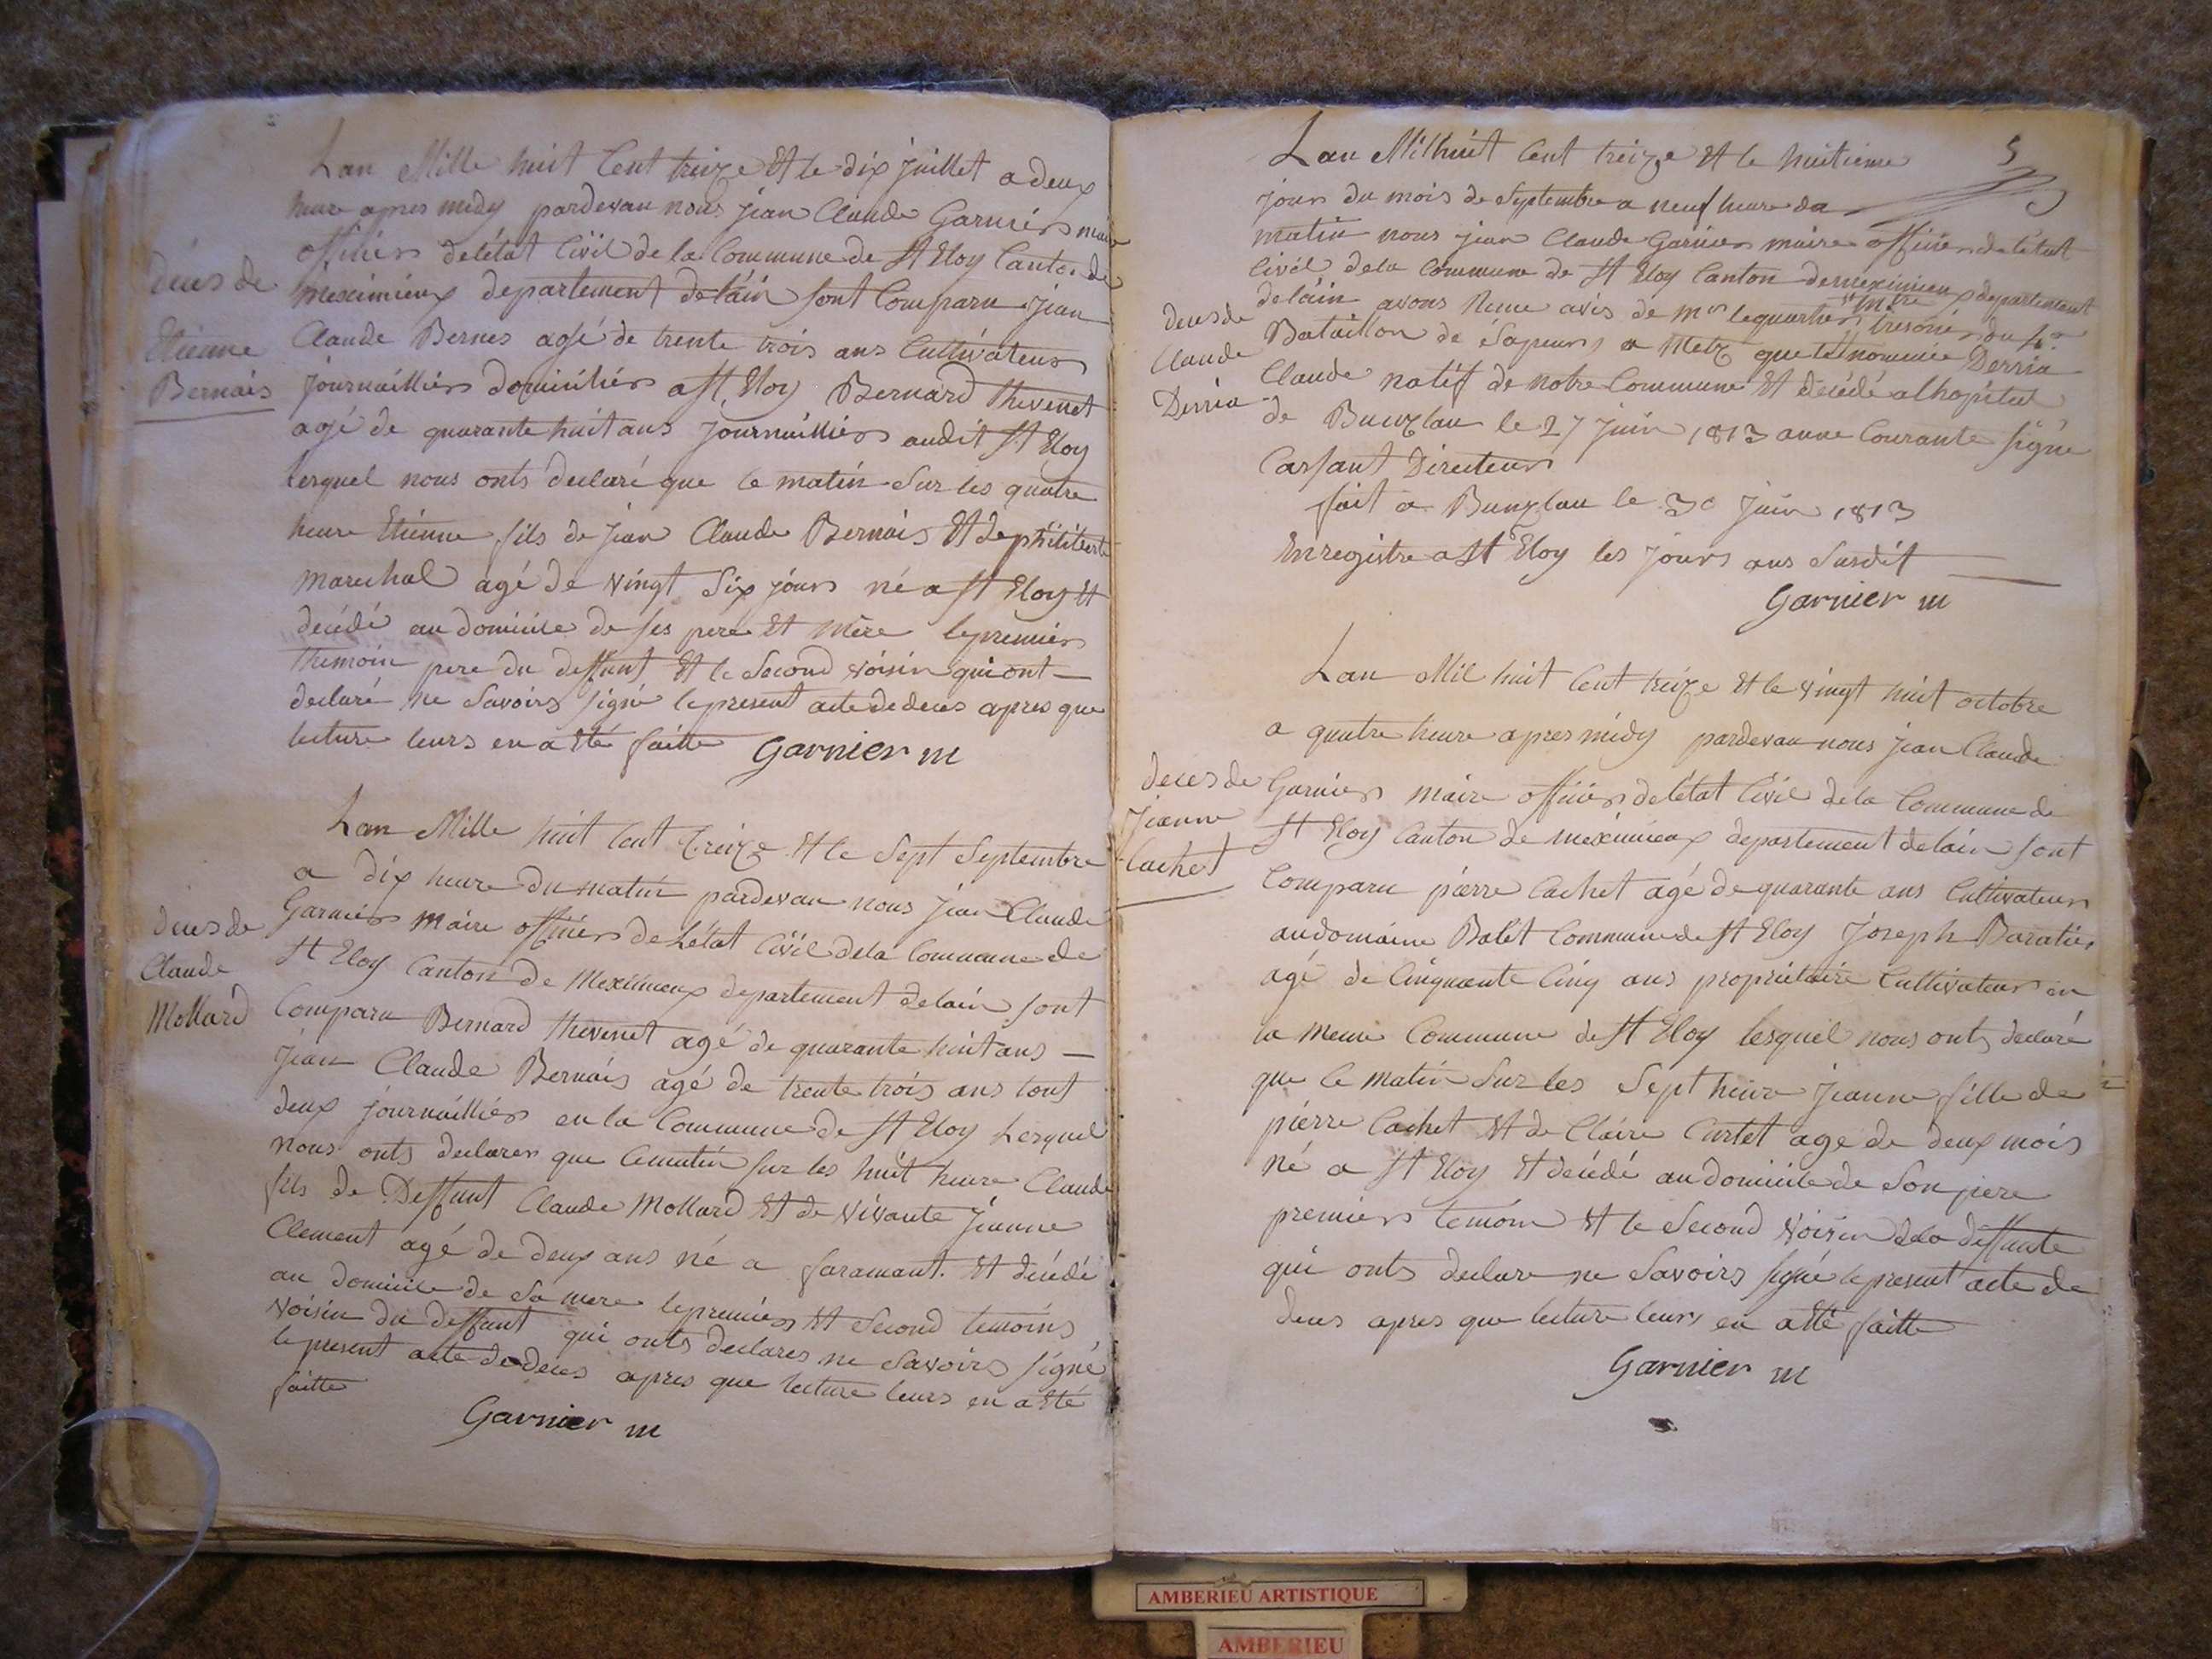 Lan Mille huit Cent treize Et le dix juillet a deux
heure apres midy pardevan nous jean Claude Garnier maire
officier deletat Civil de la Commune de St Eloy Canton de
meximieux departement delain sont Comparu jean
Claude Bernes agé de trente trois ans Cultivateur
journaillier domicilier a St Eloy Bernard thevenet
agé de quarante huit ans journaillier audit St Eloy
lesquel nous onts declaré que ce matin Sur les quatre
heure Etienne fils de jean Claude Bernais Et de philiberte
marechal agé de vingt Six jours né a St Eloy Et
décédé au domicile de ses pere Et mere le premier
themoin pere du deffunt Et le Second voisin qui ont
declaré ne Savoirs signé le present acte de deces apres que
lecture leurs en a Eté faitte Garnier m
déces de
Etienne
Bernais
Lan Mille huit Cent treize Et le Sept Septembre
a dix heure du matin pardevan nous jean Claude
Garnier maire officier de L'état Civil dela Commune de
St Eloy Canton de Meximieux departement delain sont
Comparu Bernard thevenet agé de quarante huit ans
jean Claude Bernais agé de trente trois ans tout
deux journaillier en la Commune de St Eloy Lesquel
nous onts declarer que ce matin sur les huit heure Claude
fils de Deffunt Claude Mollard Et de vivante jeanne
Clement agé de deux ans né a faramant. Et décédé
au domicile de Sa mere le premier Et Second temoins
voisin du deffunt qui onts declares ne Savoirs signé
le present acte de deces apres que lecture leurs en a Eté
faitte
Garnier m
deces de
Claude
Mollard
5
Lan Mil huit Cent treize Et le huitieme
jour du mois de Septembre a neuf heure da
matin nous jean Claude Garnier maire officier de letat
Civil dela Commune de St Eloy Canton de meximieux departement
delain avons Recue avis de Mr le quartier mtre tresorier du 4e
Bataillon de Sapeurs a Metz que le nommée Derria
Claude natif de notre Commune Et décédé a lhopital
de Bunzlau le 27 juin 1813 anne Courante signé
Cassant Directeur
fait a Bunzlau le 30 juin 1813
Enregistre a St Eloy les jours ans Susdit
Garnier m
deces de
Claude
Derria
Lan Mil huit Cent treize Et le vingt huit octobre
a quatre heure apres midy pardevan nous jean Claude
Garnier maire officier de létat Civil dela Commune de
St Eloy Canton de meximieux departement delain sont
Comparu pierre Cachet agé de quarante ans Cultivateur
au domaine Balet Commune de St Eloy Joseph Baratier
agé de Cinquante Cinq ans propriétaire Cultivateur en
la meme Commune de St Eloy lesquel nous onts declaré
que ce matin Sur les Sept heure jeanne fille de
pierre Cachet Et de Claire Curtet age de deux mois
né a St Eloy Et décédé au domicile de Son pere
premier temoin Et le Second voisin dela deffunte
qui onts declare ne Savoirs signé le present acte de
deces apres que lecture leurs en a Eté faitte
Garnier m
deces de
jeanne
Cachet
AMBERIEU ARTISTIQUE
AMBERIEU